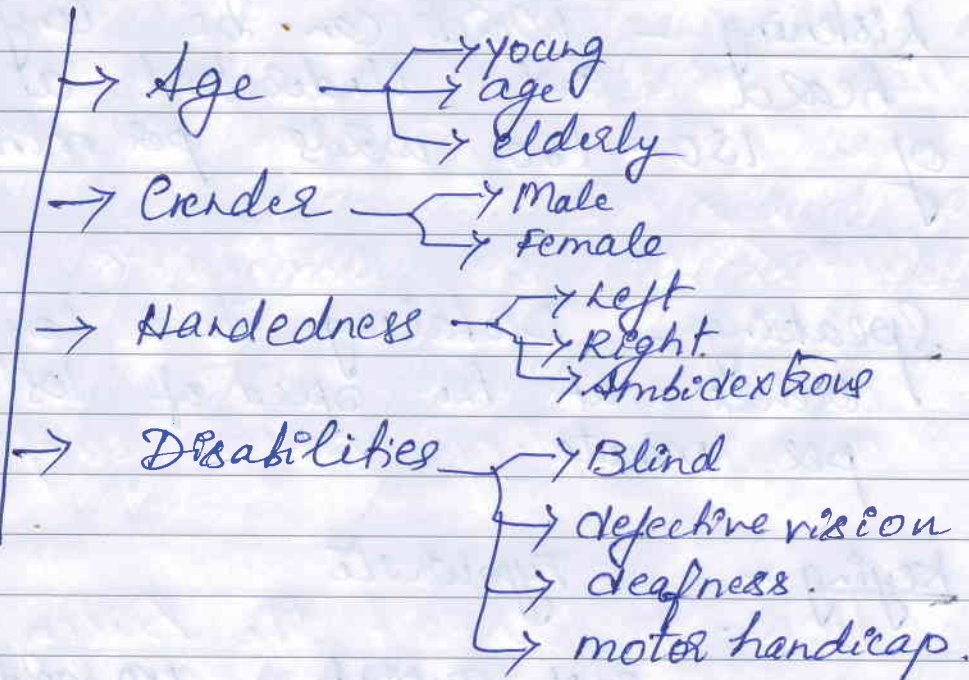 young
→ Age → age
→ elderly
→ Gender → Male
→ Female
→ Handedness → Left
→ Right.
→ Ambidextrous
→ Disabilities → Blind
→ defective vision
→ deafness.
→ motor handicap.